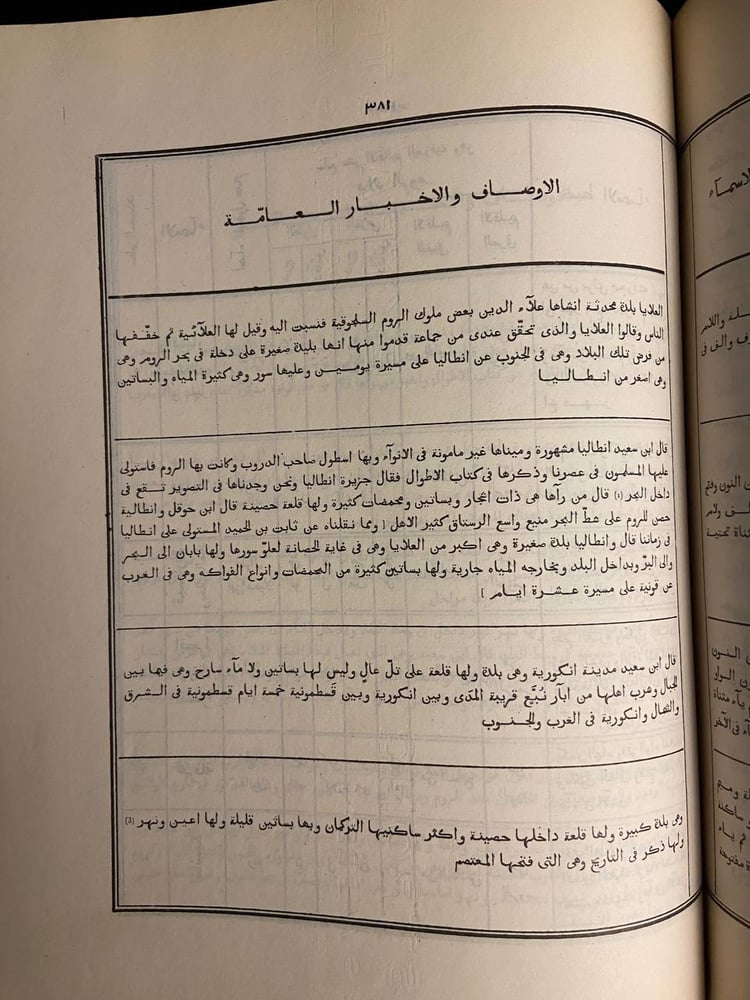 ٣٨١
الاوصاف والاخبار العامّة
العلايا بلدة محدثة انشاها علآء الدين بعض ملوك الروم السلجوقية فنسبت اليه وقيل لها العلآئية ثم خفّفها
الناس وقالوا العلايا والذى تحقّق عندى من جماعة قدموا منها انها بليدة صغيرة على دخلة فى بحر الروم وهى
من فرض تلك البلاد وهى فى الجنوب عن انطاليا على مسيرة يومين وعليها سور وهى كثيرة المياه والبساتين
وهى اصغر من انطاليا
قال ابن سعيد انطاليا مشهورة وميناها غير مامونة فى الانوآء وبها اسطول صاحب الدروب وكانت بها الروم فاستولى
عليها المسلمون فى عصرنا وذكرها فى كتاب الاطوال فقال جزيرة انطاليا ونحن وجدناها فى التصوير تقع فى
داخل البحر (٥) قال من رآها هى ذات اشجار وبساتين ومحمضات كثيرة ولها قلعة حصينة قال ابن حوقل وانطالية
حصن للروم على شطّ البحر منيع واسع الرستاق كثير الاهل [ ومما نقلناه عن ثابت بن الحميد المستولى على انطاليا
فى زماننا قال وانطاليا بلدة صغيرة وهى اكبر من العلايا وهى فى غاية الحصانة لعلوّ سورها ولها بابان الى البحر
والى البرّ وبداخل البلد وبخارجه المياه جارية ولها بساتين كثيرة من المحمضات وانواع الفواكه وهى فى الغرب
عن قونية على مسيرة عشرة ايام ]
قال ابن سعيد مدينة انكورية وهى بلدة ولها قلعة على تلّ عالٍ وليس لها بساتين ولا مآء سارح وهى فيها بين
الجبال وشرب اهلها من ابآر نُبَّع قريبة المدَى وبين انكورية وبين قَسطمونية خمسة ايام قسطمونية فى الشرق
والشمال وانكورية فى الغرب والجنوب
وهى بلدة كبيرة ولها قلعة داخلها حصينة واكثر ساكنيها التركمان وبها بساتين قليلة ولها اعين ونهر (3)
ولها ذكر فى التاريخ وهى التى فتحها المعتصم